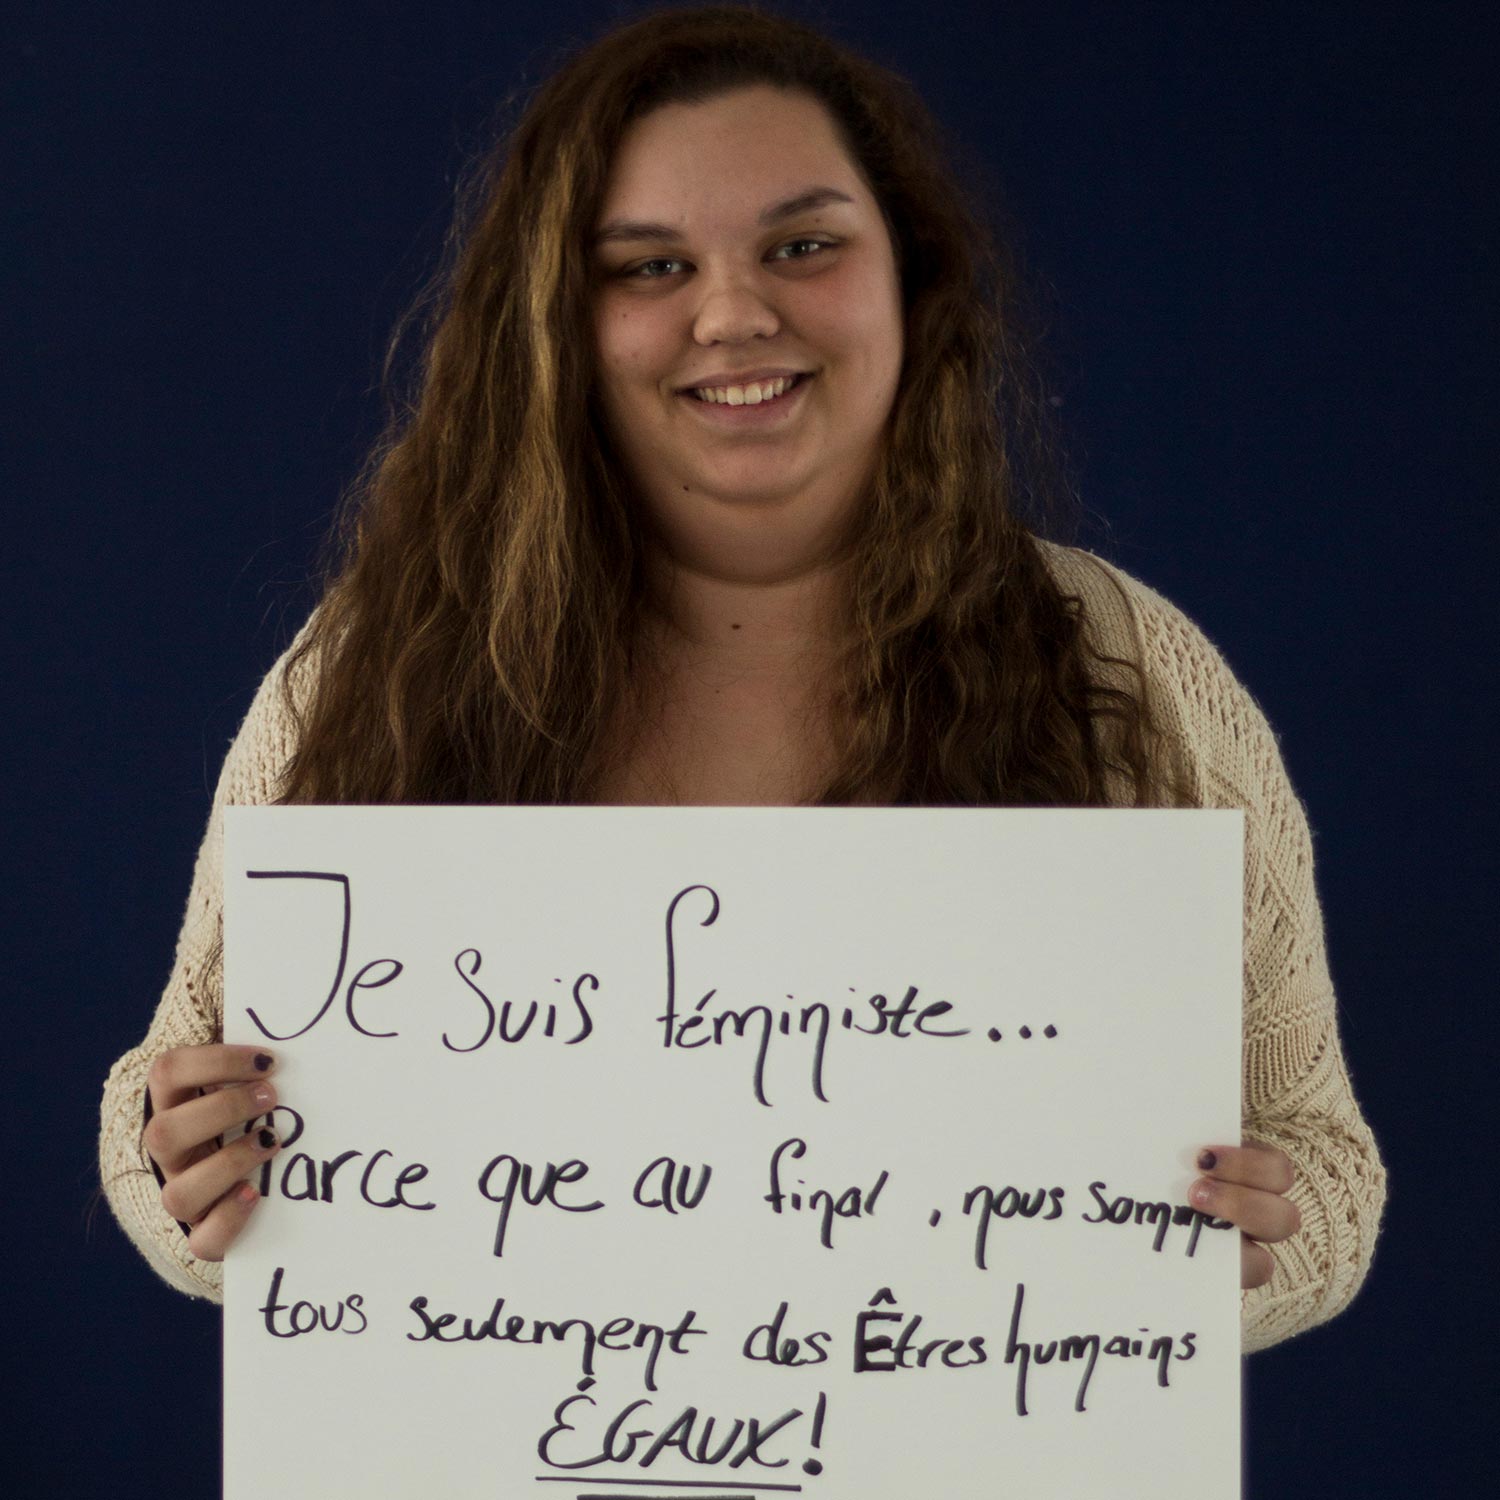 Je suis féministe...
Parce que au final, nous sommes
tous seulement des Êtres humains
ÉGAUX!